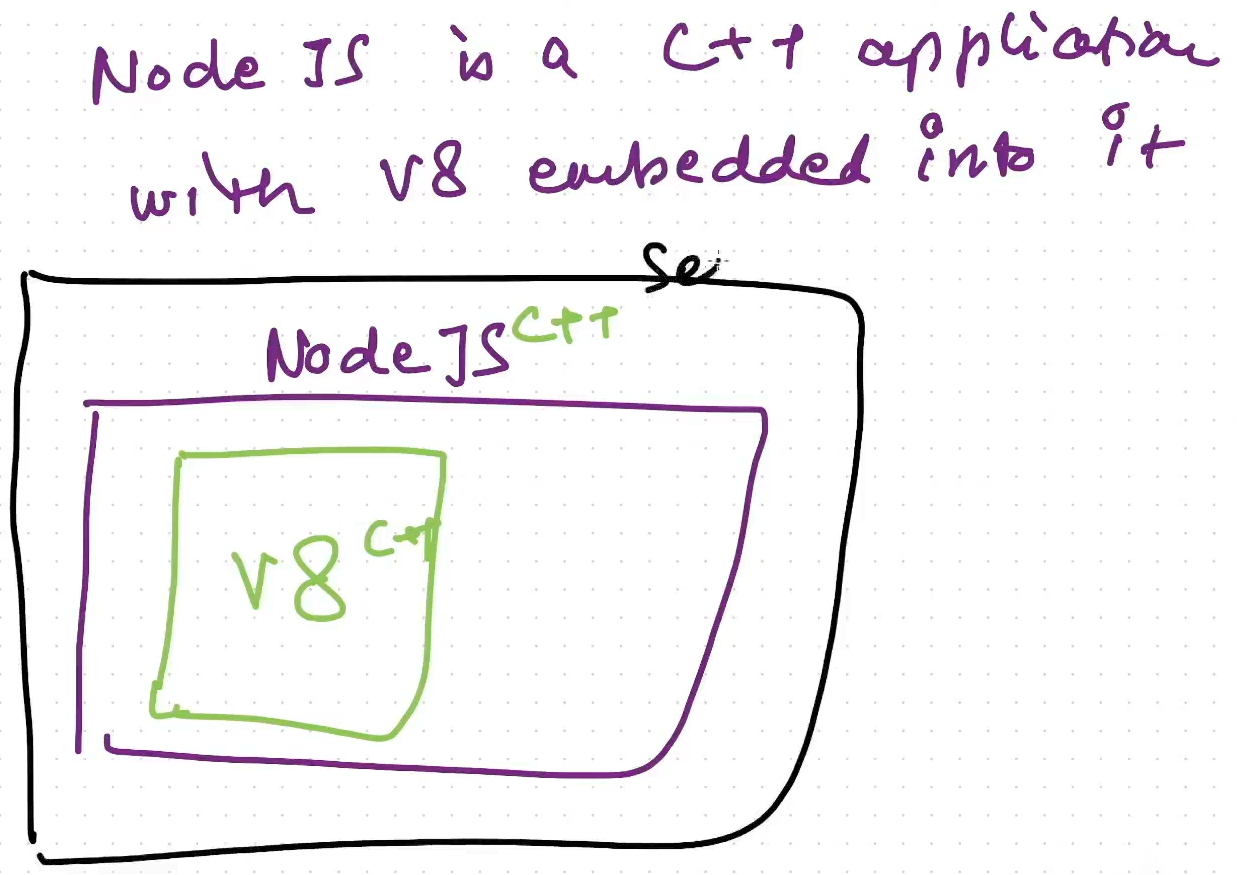 Node JS is a C++ application
with V8 embedded into it
Se
Node JS C++
V8 C++